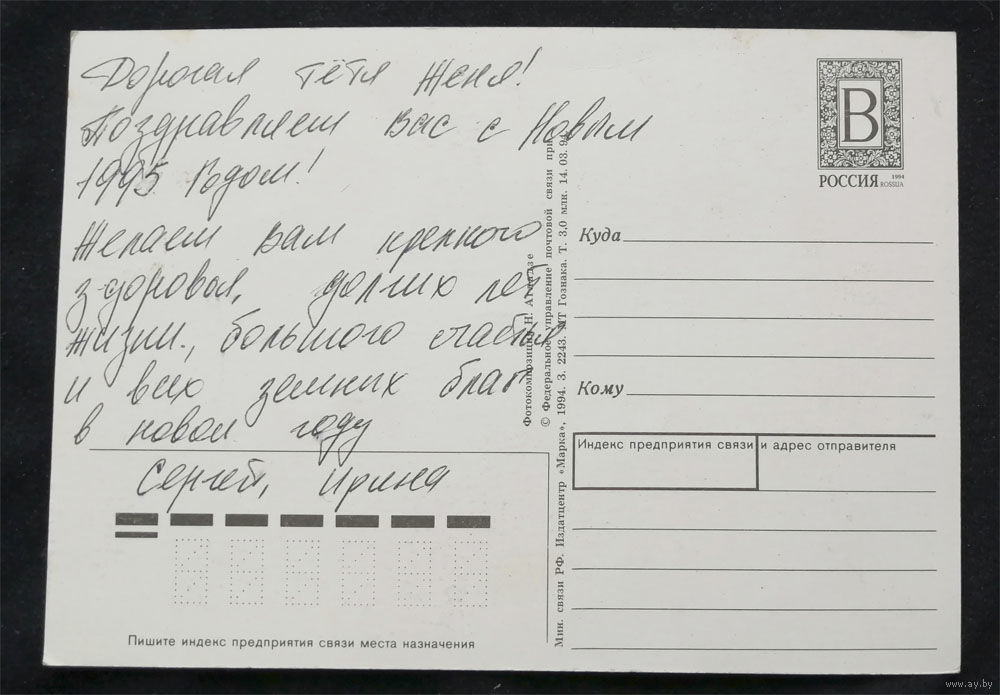 Дорогая тётя Женя!
Поздравляем Вас с Новым
1995 Годом!
Желаем Вам крепкого
здоровья, долгих лет
жизни, большого счастья
и всех земных благ
в новом году
Сергей, Ирина
Пишите индекс предприятия связи места назначения
Фотокомпозиция Н.
© Федеральное управление почтовой связи при
Мин. связи РФ. Издатцентр «Марка», 1994. З. 2243. МТ Гознака. Т. 3,0 млн. 14.03.94
В
РОССИЯ 1994 ROSSIJA
Куда
Кому
Индекс предприятия связи и адрес отправителя
www.ay.by